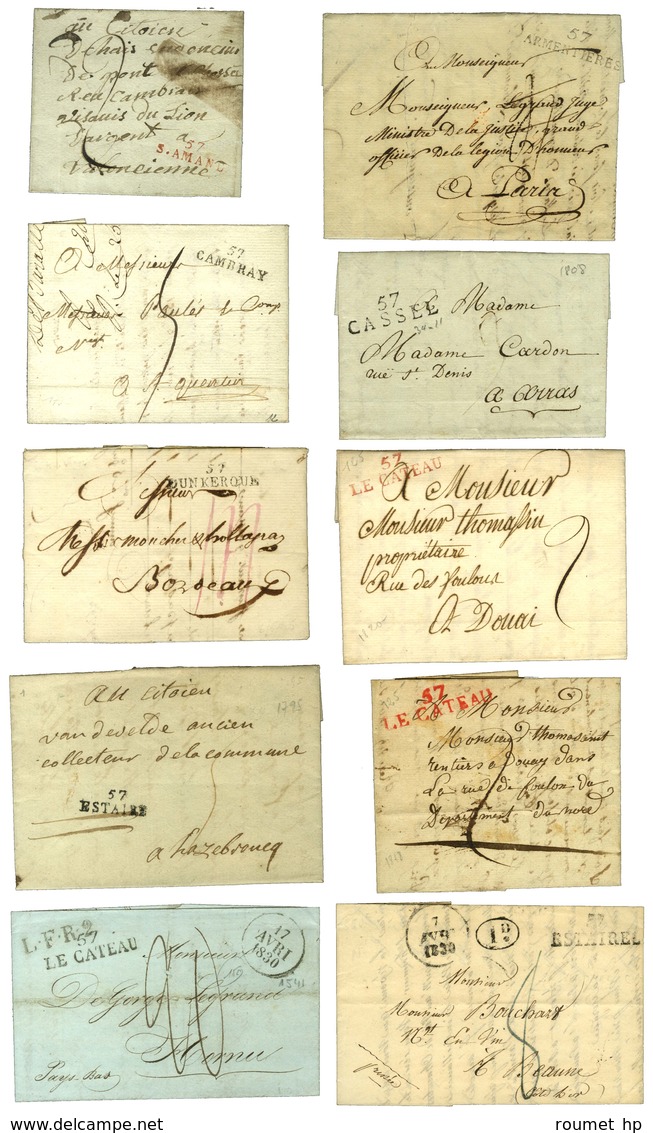 au Citoien
De pont
Reu Cambrai
du Lion
Dargent a
57
S.AMAND
Valencienne
57
ARMENTIERES
A Monseigneur
Monseigneur, Legrand Juge
Ministre De la Justice, grand
officier De la legion D'honneur
A Paris
57
CAMBRAY
A Messieurs
Messieurs
Negt
A St quentin
1808
57
CASSEL
A Madame
Madame Cardon
rue St Denis
a Arras
57
DUNKERQUE
Bordeaux
57
LE CATEAU
A Monsieur
Monsieur thomassin
propriétaire
Rue des foulons
A Douai
1795
au citoien
vandevelde ancien
collecteur de la commune
57
ESTAIRE
a hazebroucq
57
LE CATEAU
A Monsieur
Monsieur thomassint
rentiers a Douay dans
La rue de foulon, du
Departement du nord
L.F.R.2
57
LE CATEAU
17
AVRI
1830
Monsieur
DeGorge Legrand
Hornu
Pays-Bas
7
AVR
1830
1D
57
ESTAIREL
Monsieur
Monsieur Bouchart
Nt En Vin
A Beaune
(Cote D'or)
© roumet hp